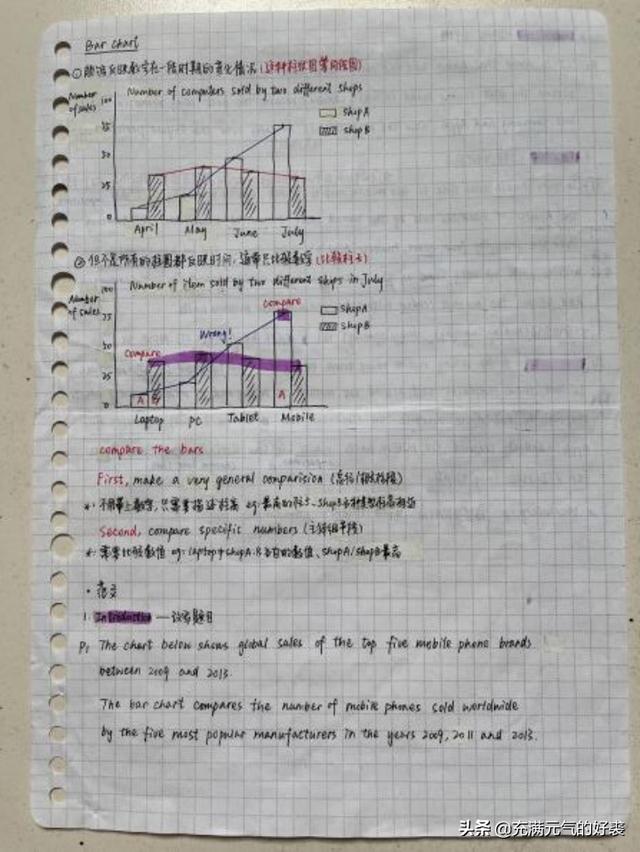 Bar chart
①能够反映数字在一段时期的变化情况(这种柱状图等同线图)
Number of sales
Number of computers sold by two different shops
100
75
50
25
0
shop A
shop B
April May June July
②但不是所有的柱图都反映时间,通常只比较数字(比较柱子)
Number of sales
Number of item sold by two different shops in July
100
75
50
25
0
Compare
Wrong!
Compare
shop A
shop B
A B A
Laptop PC Tablet Mobile
compare the bars
First, make a very general comparision
*: 不用带上数字,只需要描述 eg: 最高的柱子、shop B
Second, compare specific numbers
*: 需要比较数值 eg: laptop中shop A.B各自的数值、shop A/shop B最高
· 范文
1. Introduction — 改写题目
P: The chart below shows global sales of the top five mobile phone brands
between 2009 and 2013.
The bar chart compares the number of mobile phones sold worldwide
by the five most popular manufacturers in the years 2009, 2011 and 2013.
头条 @充满元气的好裘